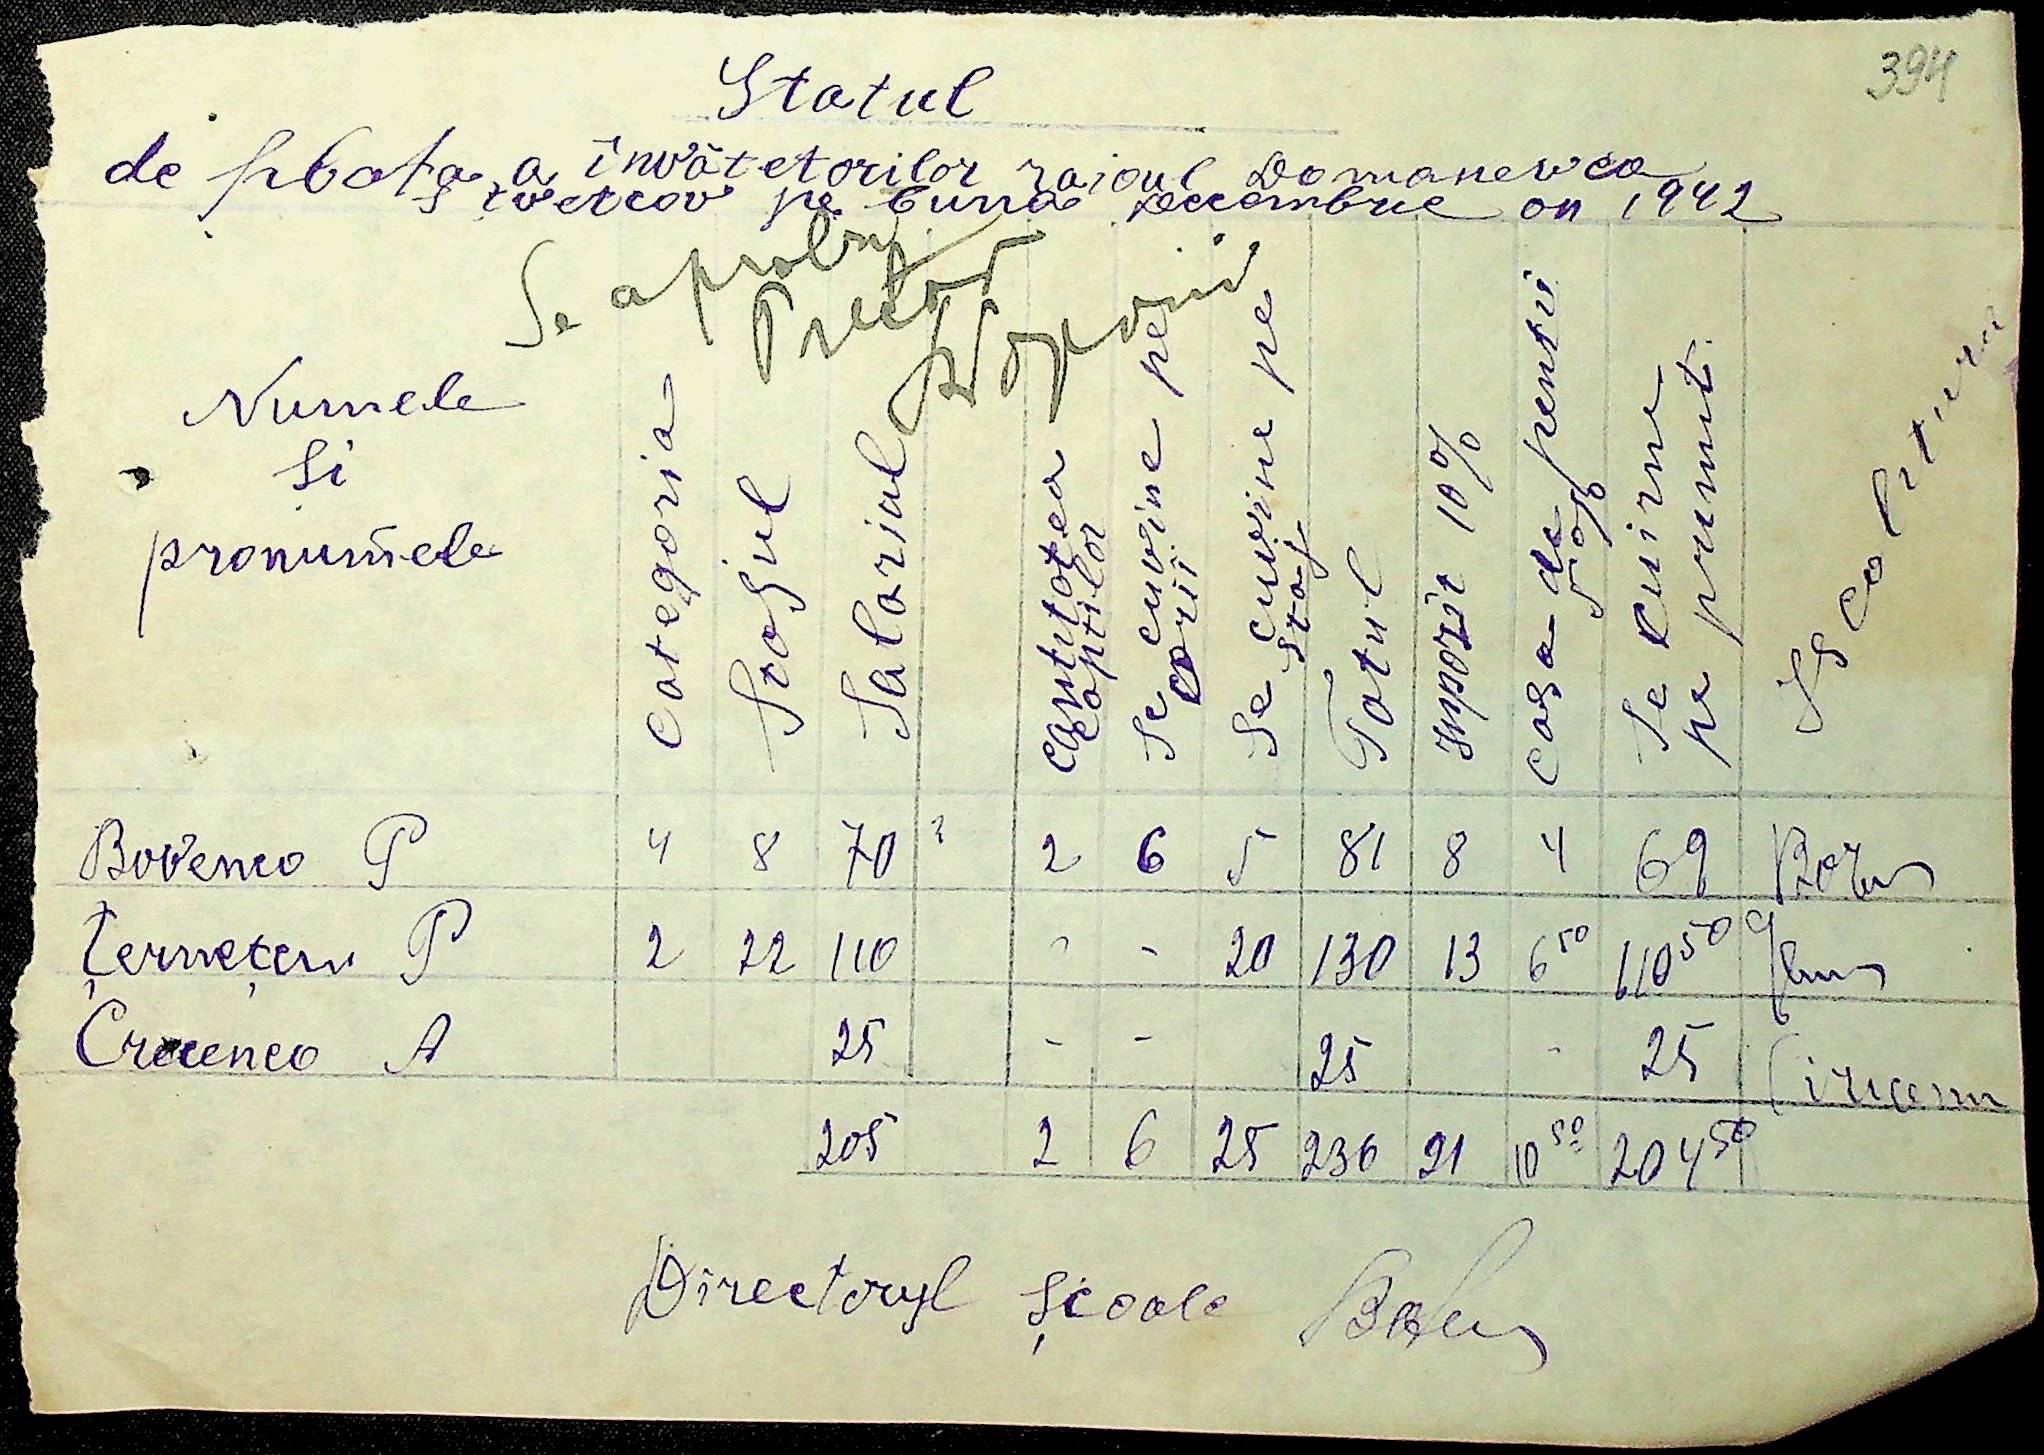 394
Statul
de plata a învătetorilor raioul Domanevca
s tvetcov pe luna Decembrie an 1942
Se aprobă
Pretor
Numele si pronumele
Categoria
Stajul
Salariul
Cantitatea coptilor
Se cuvine pe copii
Se cuvine pe staj
Totul
Impozit 10%
Casa de pentii 5%
Se cuirne pe prumit.
Iscolitura
Bovenco P 4 8 70 2 6 5 81 8 4 69
Țernețcru P 2 22 110 - - 20 130 13 6 50 110 50
Crucenco A 25 - - 25 - 25
205 2 6 25 236 21 10 50 204 50
Directorul școale